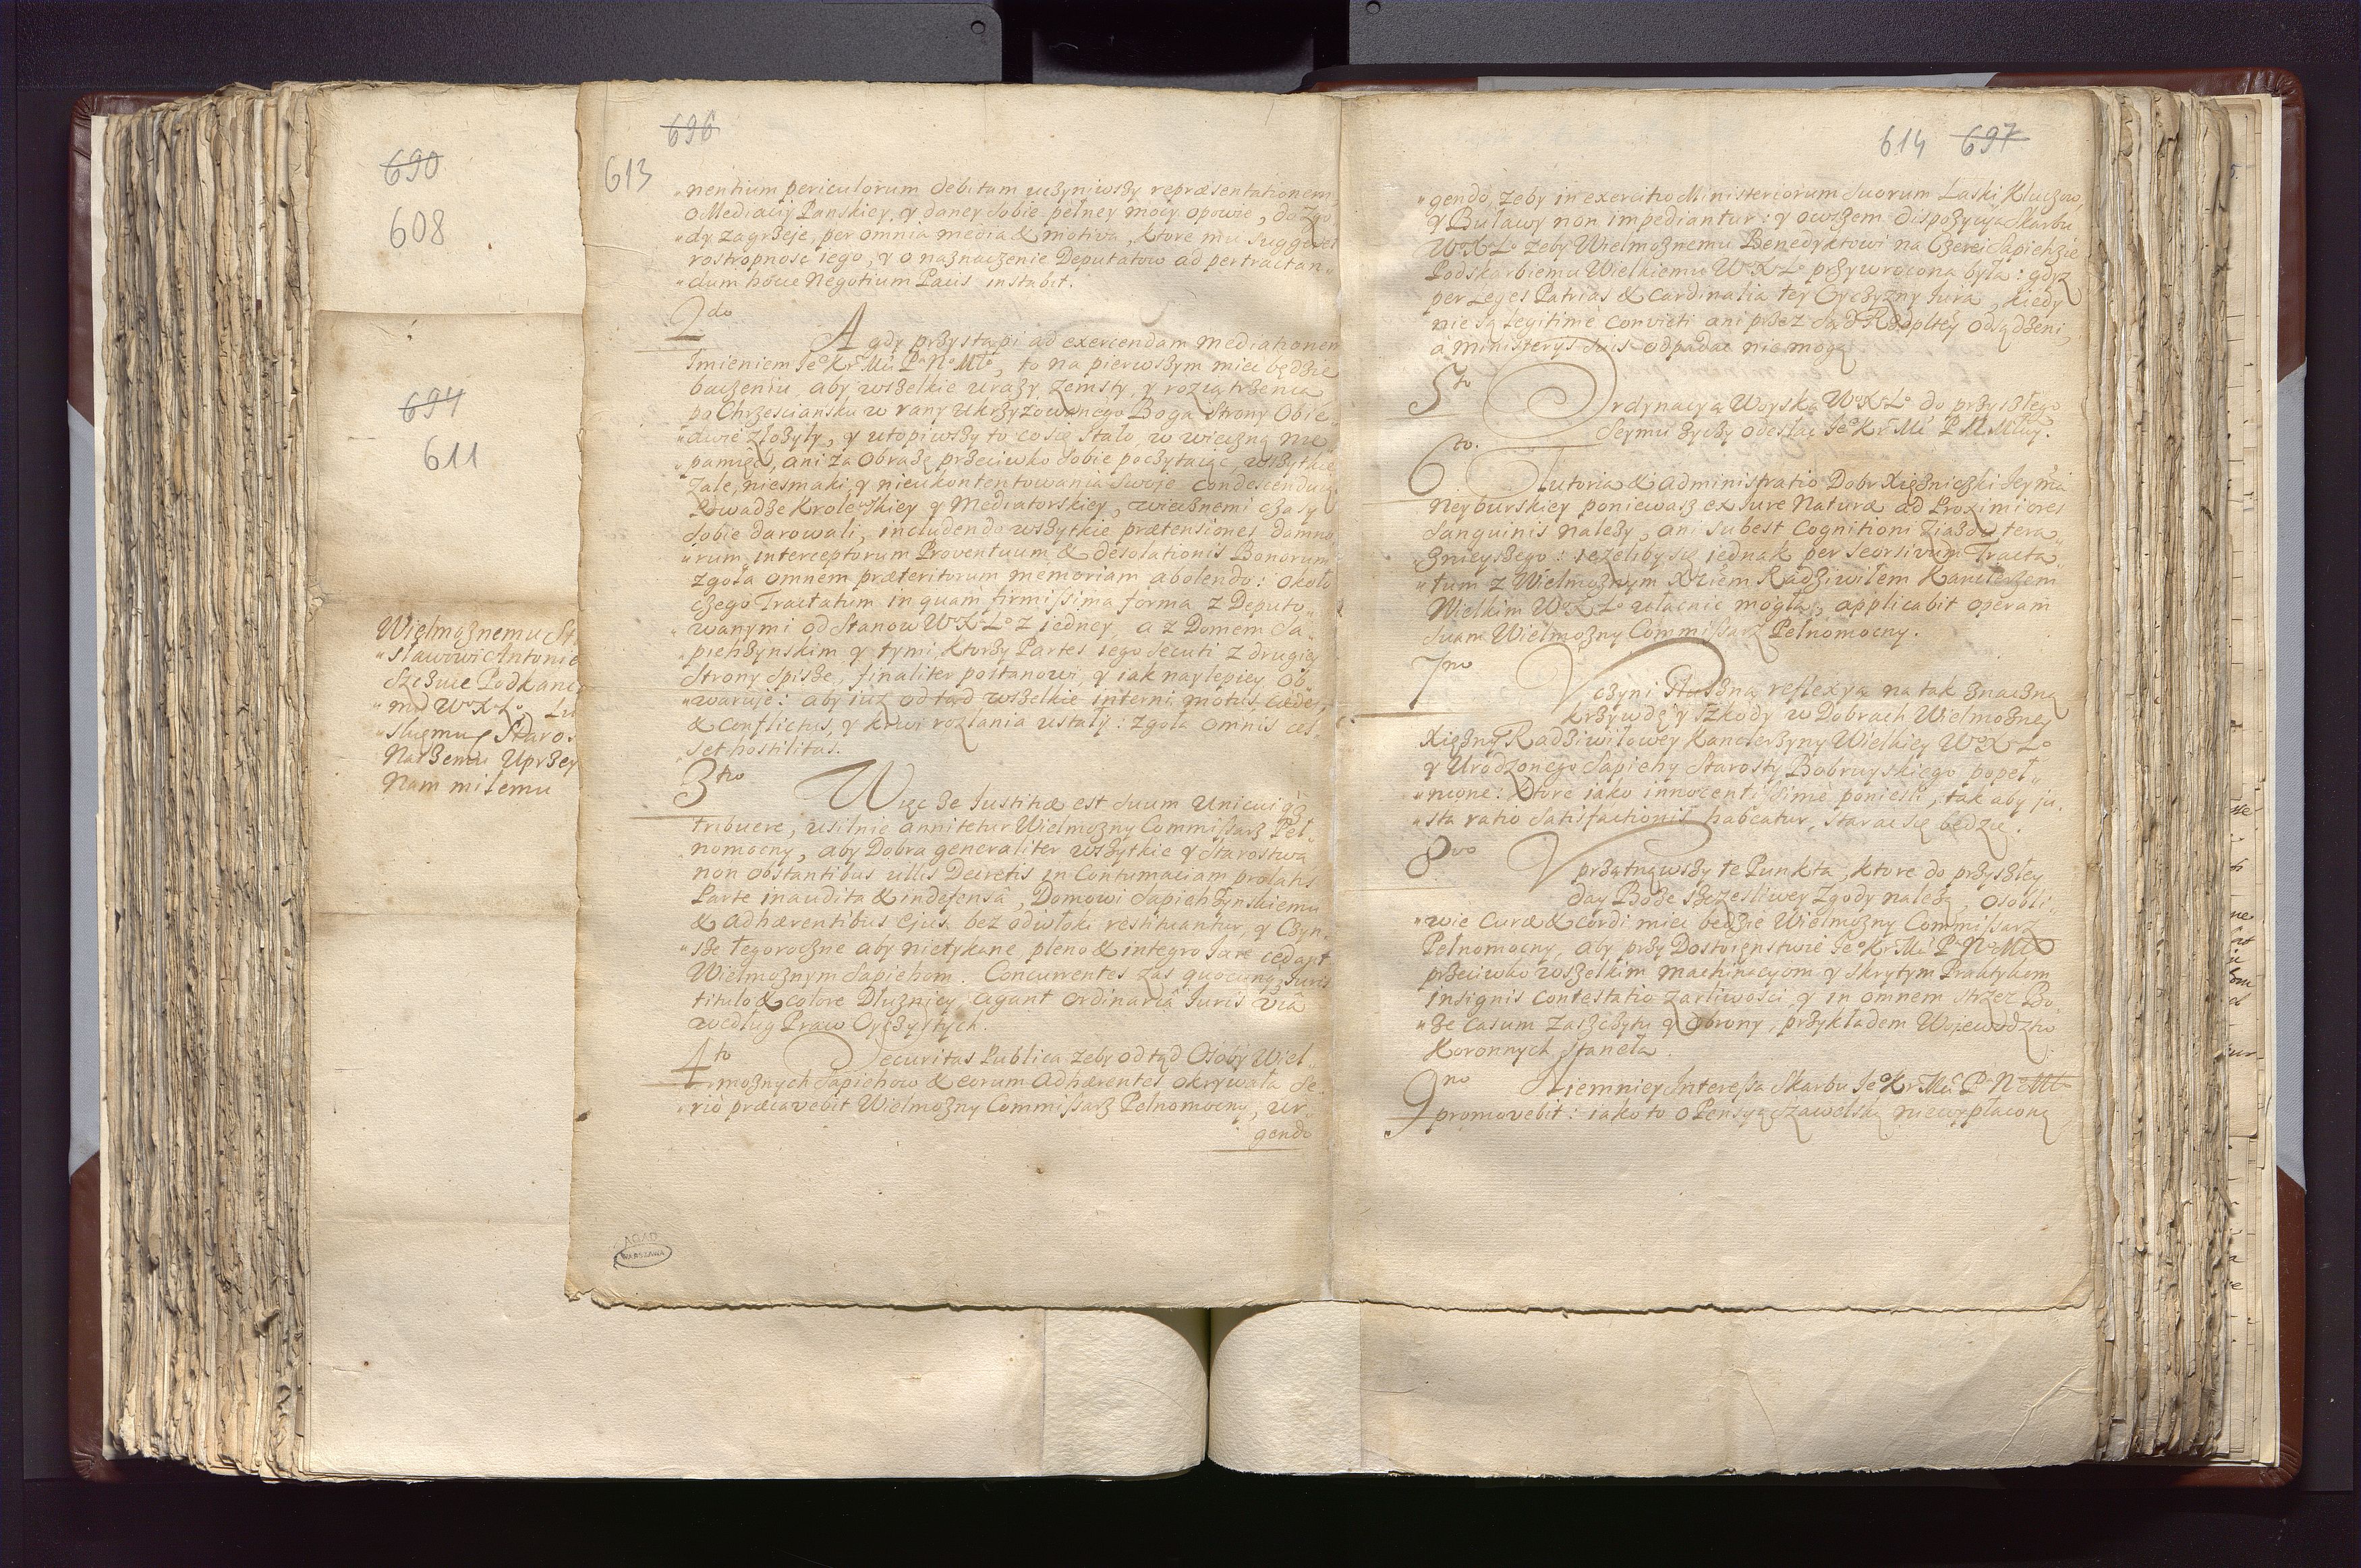 690
608
694
611
Wielmożnemu St
"sławowi Antonie
Szczuce Podkanc
"mu WoXoLo Lu
"skiemu Staros
Naszemu Uprzey
Nam miłemu
696
613
"nentium periculorum debitam uczyniwszy repræsentationem
o Mediacij Panskiey, y daney sobie pełney mocy opowie, do Zgo
"dy zagrzeje, per omnia media & motiva, ktore mu suggeret
rostropnosc iego, y o naznaczenie Deputatow ad pertractan"
"dum hocce Negotium Pacis instabit.
2do
A gdy przystąpi ad exercendam mediationem
Imieniem Jeo Kr Mci Pa No Mło, to na pierwszym miec będzie
baczeniu, aby wszelkie urazy, zemsty, y roziątrzenia
po Chrzesciansku w rany Ukrzyzowanego Boga Strony Obie"
"dwie złożyły, y utopiwszy to co się stało, w wieczną nie"
"pamięć, ani za obrazę przeciwko sobie poczytaiąc, wszytkie
Zale, niesmaki, y nieukontentowania swoje condescenduią
Powadze Krolewskiey y Mediatorskiey, wiecznemi czasy
sobie darowali, includendo wszytkie prætensiones damno
"rum, interceptorum Proventuum & desolationis Bonorum
zgoła omnem præteritorum memoriam abolendo: około
czego Tractatum in quam firmissima forma z Deputo"
"wanymi od Stanow WoXoLo z iedney, a z Domem Sa"
"piehzynskim y tymi ktorzy Partes iego secuti z drugiey
strony spisze, finaliter postanowi, y iak naylepiey ob"
"waruje: aby iuż odtąd wszelkie interni motus, cædes,
& Conflictus, y krwi rozlania ustały: zgoła omnis ces"
"set hostilitas.
3tio
Więc że Justitiæ est suum unicuiq3
tribuere, usilnie annitetur Wielmożny Commissarz Peł"
"nomocny, aby Dobra generaliter wszytkie y Starostwa
non obstantibus ullis Decretis in Contumaciam prolatis
Parte inaudita & indefensâ, Domowi Sapiehzynskiemu
& Adhærentibus Ejus bez odwłoki restituantur, y Czyn"
"sze tegoroczne aby nietykane pleno & integro Jure cedant
Wielmożnym Sapiehom. Concurrentes zas quocunq3 Juris
titulo & colore Dłużnicy agant ordinariâ Juris viâ
według Praw Oyczystych.
4to
Securitas Publica żeby odtąd Osoby Wiel"
"możnych Sapiehow & eorum Adhærentes okrywała se"
"rio præcavebit Wielmożny Commissarz Pełnomocny, ur"
gendo
AGAD
WARSZAWA
614 697
"gendo, żeby in exercitio Ministeriorum suorum Laski, Kluczow,
y Buławy non impediantur: y owszem dispozycya Skarbu
WoXoLo żeby Wielmożnemu Benedyktowi na Czerei Sapiehzie
Podskarbiemu Wielkiemu WoXoLo przywrocona była: gdyż
per Leges Patrias & Cardinalia tey Oyczyzny Jura, kiedy
nie są legitimè convicti ani przez Sąd Rzpltey odsądzeni,
à Ministerijs suis odpadac nie mogą
5to
Ordynacyą Woyska WoXoLo do przyszłego
Seymu życzy odesłac Jeo Kr Mć P N Młwy.
6to.
Tutoria & administratio Dobr Xiężniczki Jeymci
Neyburskiey poniewasz ex Jure Naturæ ad Proximiores
Sanguinis należy, ani subest Cognitioni Ziazdu tera"
"znieyszego: jeżeliby się jednak per seorsivum Tracta"
"tum z Wielmożnym Xciem Radziwiłem Kanclerzem
Wielkim WoXoLo ułacnic mogła, applicabit operam
suam Wielmożny Commissarz Pełnomocny.
7mo
Uczyni słuszną reflexyą na tak znaczną
krzywdę y szkody w Dobrach Wielmożney
Xiężny Radziwiłowey Kanclerzyny Wielkiey WoXoLo
y Urodzonego Sapiehy Starosty Bobruyskiego popeł"
"nione: ktore iako innocentissimè poniesli, tak aby ju"
"sta ratio satisfactionis habeatur, starac się będzie.
8vo
Uprzątnąwszy te Punkta, ktore do przyszłey
day Boże szczesliwey Zgody należą, osobli"
"wie curæ & cordi miec będzie Wielmożny Commissarz
Pełnomocny, aby przy Dostoienstwie Jeo Kr Mci Pa No Mło
przeciwko wszelkim machinacyom y skrytym Praktykom
insignis contestatio żarliwosci, y in omnem strzeż Bo"
"że casum zaszczytu y obrony, przykładem Wojewodztw
Koronnych stanęła.
9no
Niemniey Interessa Skarbu Jeo Kr Mci Pa No Mło
promovebit: iako to o Pensyą Szawelską niewypłaconą